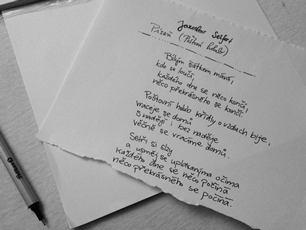 Jaroslav Seifert
Píseň (Poštovní holub)
Bílým šátkem mává,
kdo se loučí,
každého dne se něco končí,
něco překrásného se končí.
Poštovní holub křídly o vzduch bije,
vraceje se domů,
s nadějí i bez naděje
věčně se vracíme domů.
Setři si slzy
a usměj se uplakanýma očima
každého dne se něco počíná
něco překrásného se počíná.